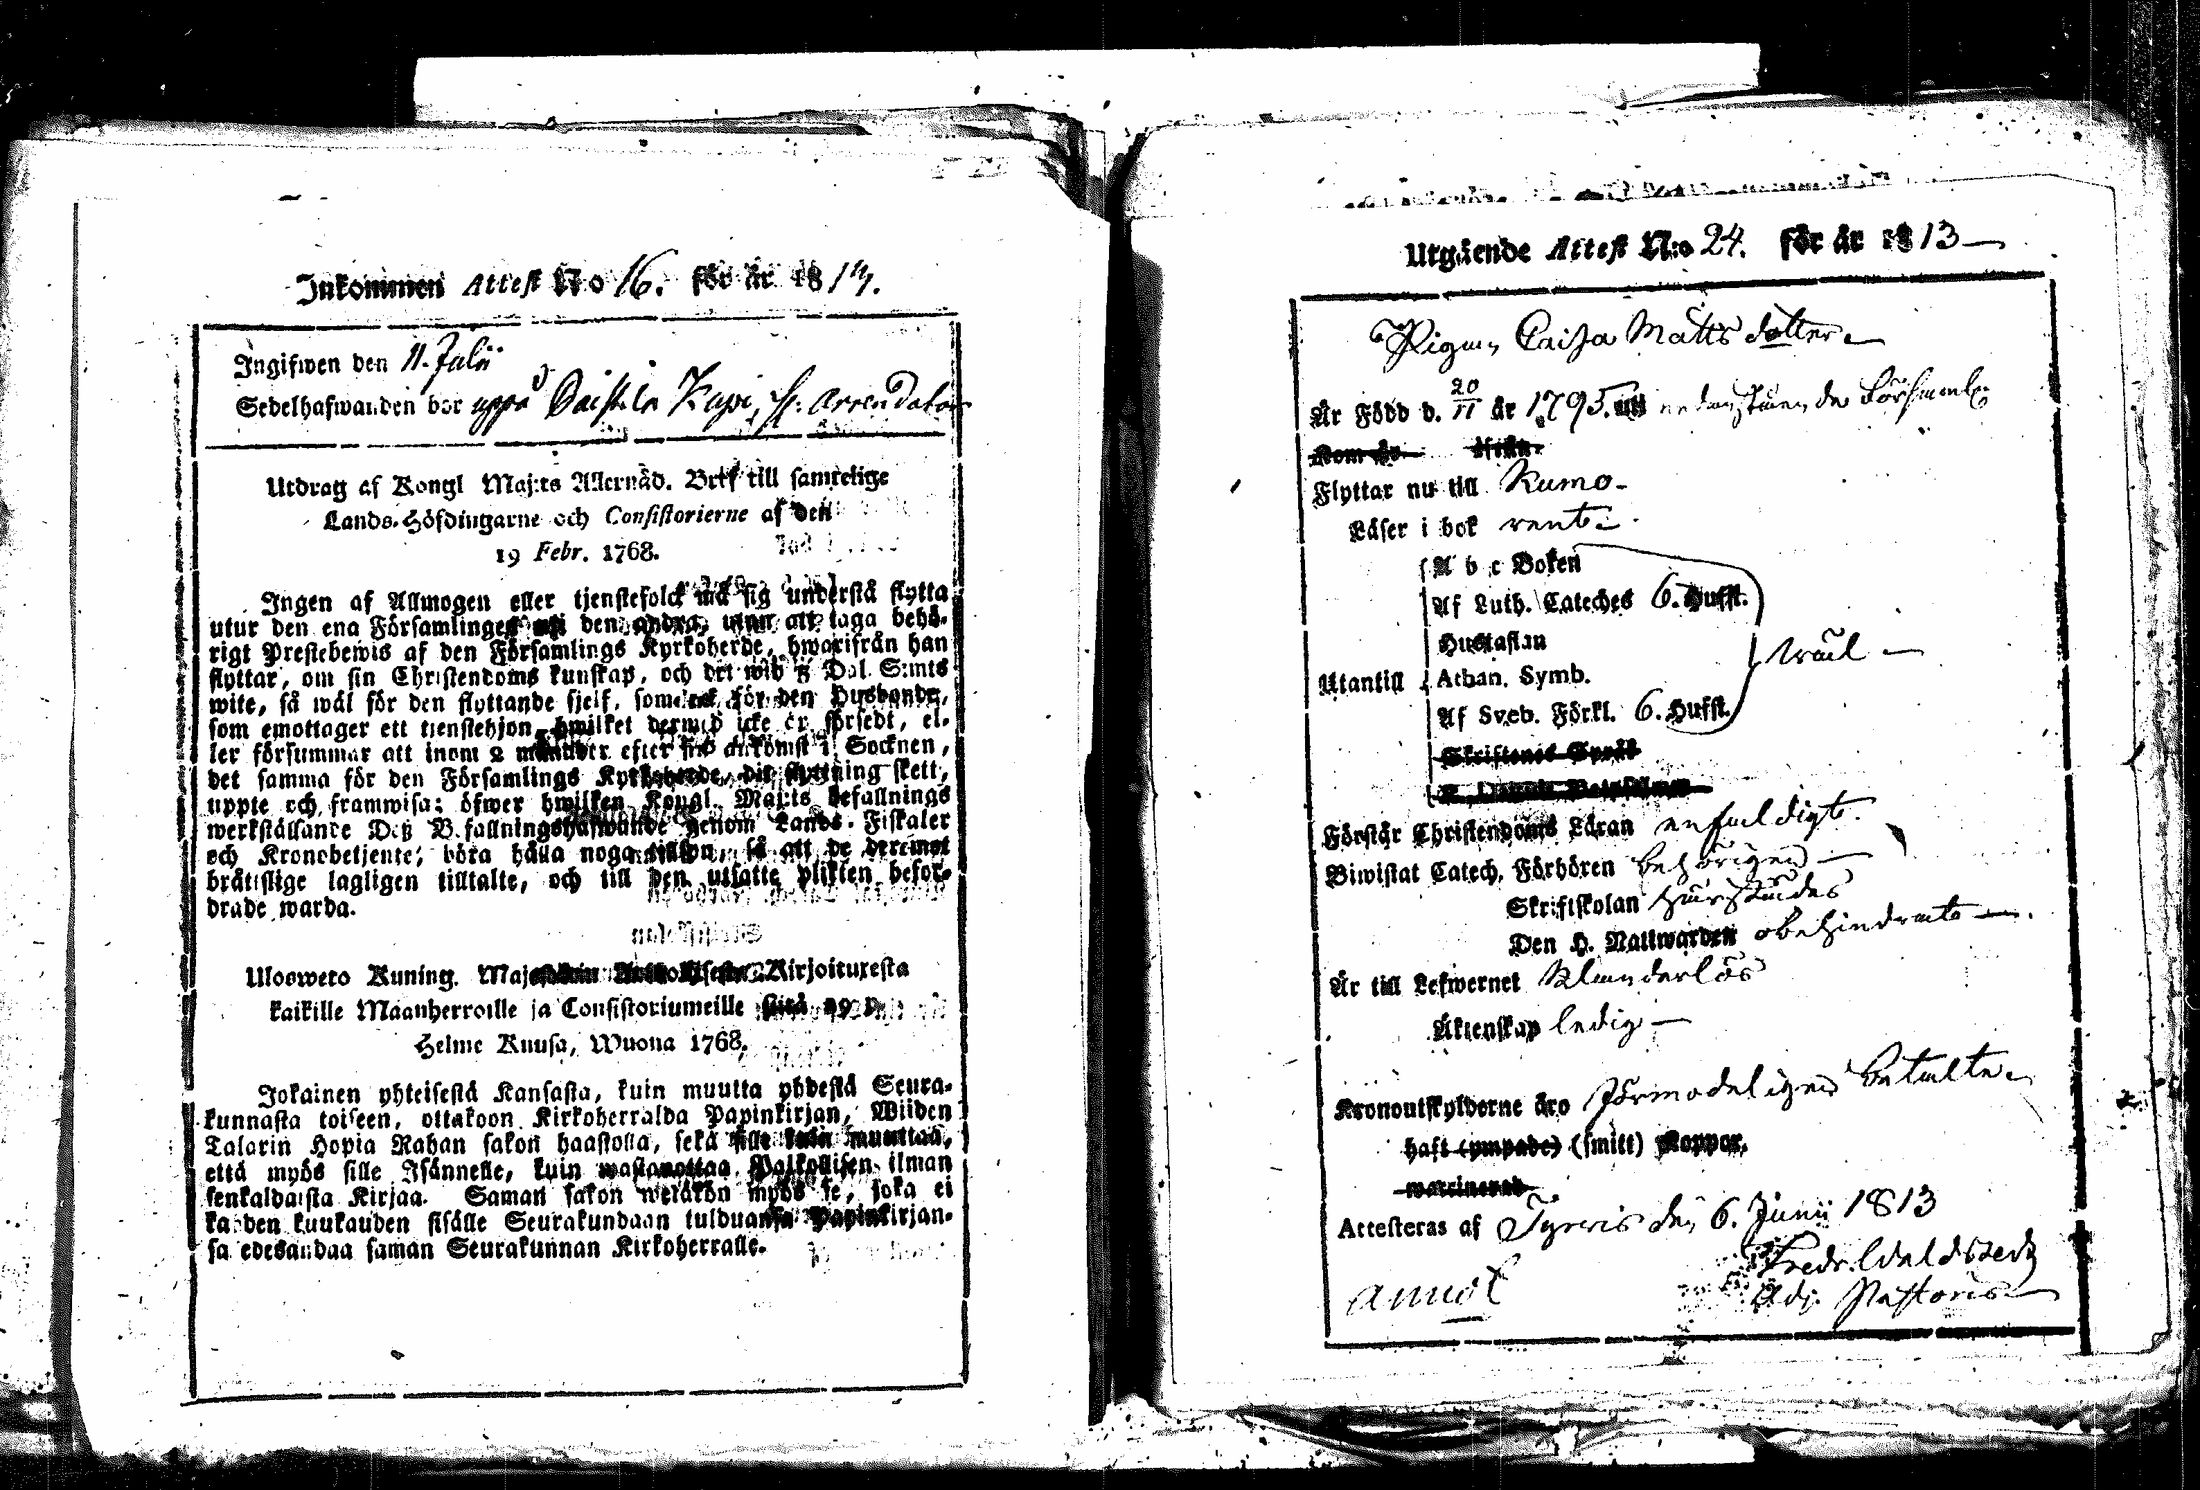 Inkommen Attest No 16. för år 1814.
Ingifwen den 11. Julii
Sedelhafwanden bor uppå Kapi, Hr Arrendator
Utdrag af Kongl Maj:ts Allernåd. Bref till samtelige
Lands-Höfdingarne och Consistorierne af den
19 Febr. 1768.
Ingen af Allmogen eller tjenstefolck må sig understå flytta
utur den ena Församlingen uti den andra, utan att taga behö-
rigt Prestebewis af den Församlings Kyrkoherde, hwarifrån han
flyttar, om sin Christendoms kunskap, och det wid 5 Dal. S:mts
wite, så wäl för den flyttande sjelf, som ock för den Husbonde,
som emottager ett tienstehjon hwilket dermed icke är försedt, el-
ler försummar att inom 2 månader efter sin ankomst i Socknen,
det samma för den Församlings Kyrkoherde, dit flyttning skett,
uppte och framwisa; öfwer hwilken Kongl. Maj:ts befallnings
werkställande Deß Befallningshafwande genom Lands-Fiskaler
och Kronobetjente, böra hålla noga tillsyn, så att de deremot
bråttslige lagligen tilltalte, och till den utsatte plikten befor-
drade warda.
Ulosweto Kuning. Majestetin Kirjoituxesta
kaikille Maanherroille ja Consistoriumeille siitä 19 p.
Helme Kuusa, Wuona 1768.
Jokainen yhteisestä Kansasta, kuin muutta yhdestä Seura-
kunnasta toiseen, ottakoon Kirkoherralda Papinkirjan, Wiiden
Talarin Hopia Rahan sakon haastolla, sekä sille kuin muuttaa,
että myös sille Isännelle, kuin wastanottaa Palkollisen ilman
senkaldaista Kirjaa. Saman sakon wetäkön myös se, joka ei
kahden kuukauden sisälle Seurakundaan tulduansa Papinkirjan-
sa edesandaa saman Seurakunnan Kirkoherralle.
Utgående Attest N:o 24. för år 1813
Pigan Caisa Matts dotter
Är Född d. 20/11 år 1795. uti nedanstående Församl:
Kom år ifrån
Flyttar nu till Kumo
Läser i bok rent
A b c Boken
Af Luth. Cateches 6. Hufst.
Hustaflan
Utantill Athan. Symb. wäl
Af Sveb. Förkl. 6. Hufst.
Skriftenes Språk
Förstår Christendoms Läran enfaldigt.
Biwistat Catech. Förhören behörigen
Skriftskolan
Den H. Nattwarden obehindrat
Är till Lefwernet klanderlös
Äktenskap ledig
Kronoutskylderne äro förmodeligen betalte
haft (ympade) (smitt) Koppor.
waccinerad
Attesteras af Tyrvis den 6. Junii 1813
Fredr. Waldstedt
Adj. Pastoris